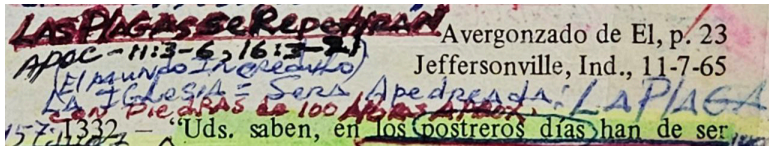 LAS PlAGAS se RepetIRAN
Avergonzado de El, p. 23
APOC - 11:3-6, 16:3-21
Jeffersonville, Ind., 11-7-65
(El mundo Incredulo)
LA IGlesia = SerA Apedreada: LA PlAGA
Con PiedRAS de 100 
1332 – “Uds. saben, en los postreros días han de ser